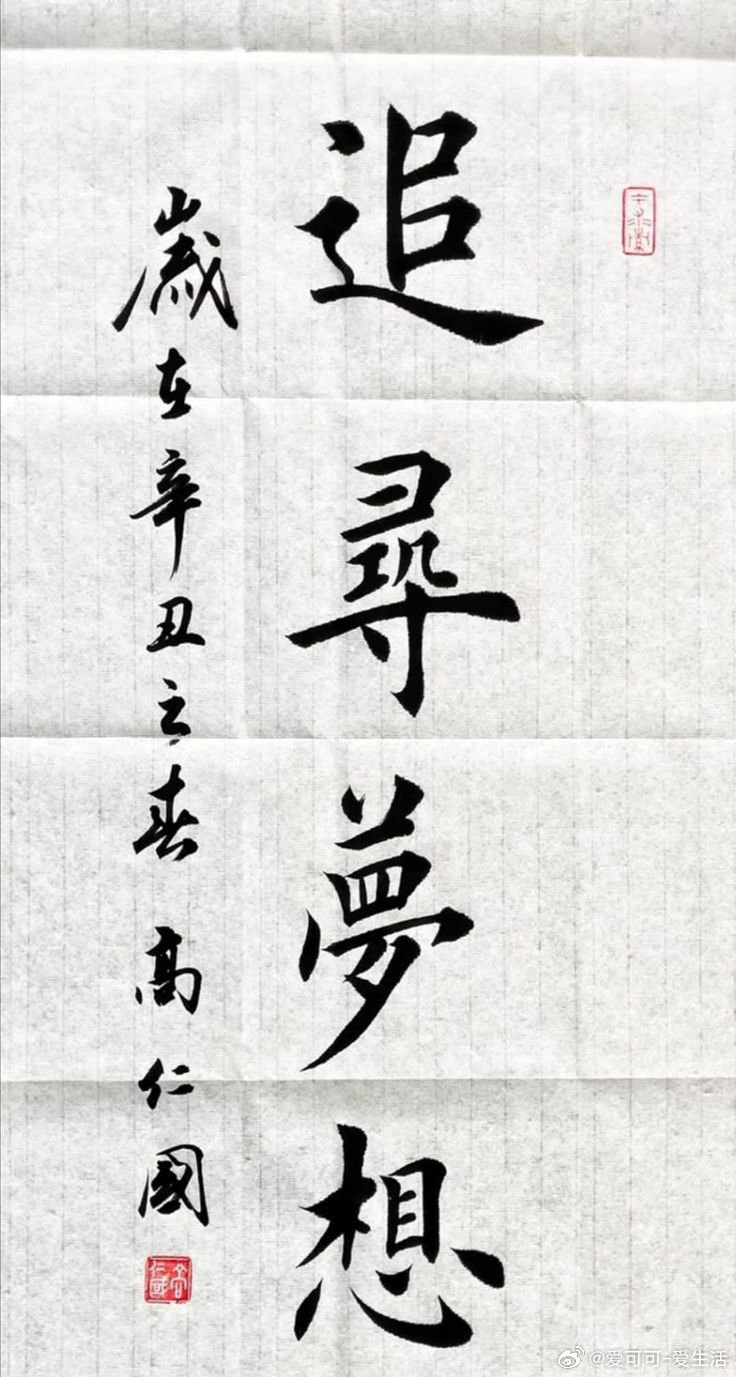 追尋夢想
歲在辛丑之春 高仁國
高仁國
@爱可可-爱生活